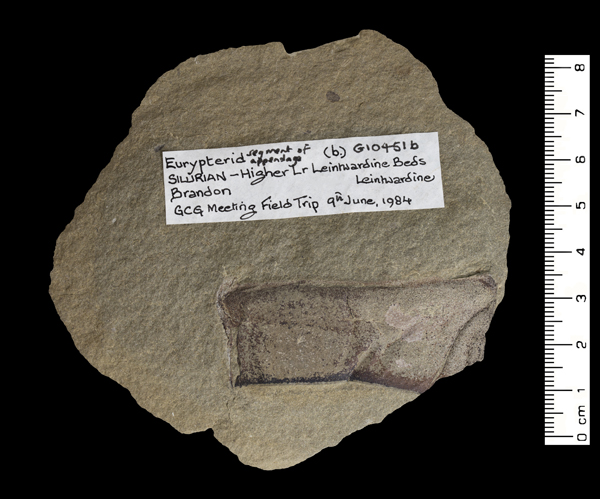 Eurypterid segment of appendage (b.) G10451b
SILURIAN - Higher Lr Leintwardine Beds
Brandon Leintwardine
GCG Meeting Field Trip 9th June, 1984
8
7
6
5
4
3
2
1
0 cm